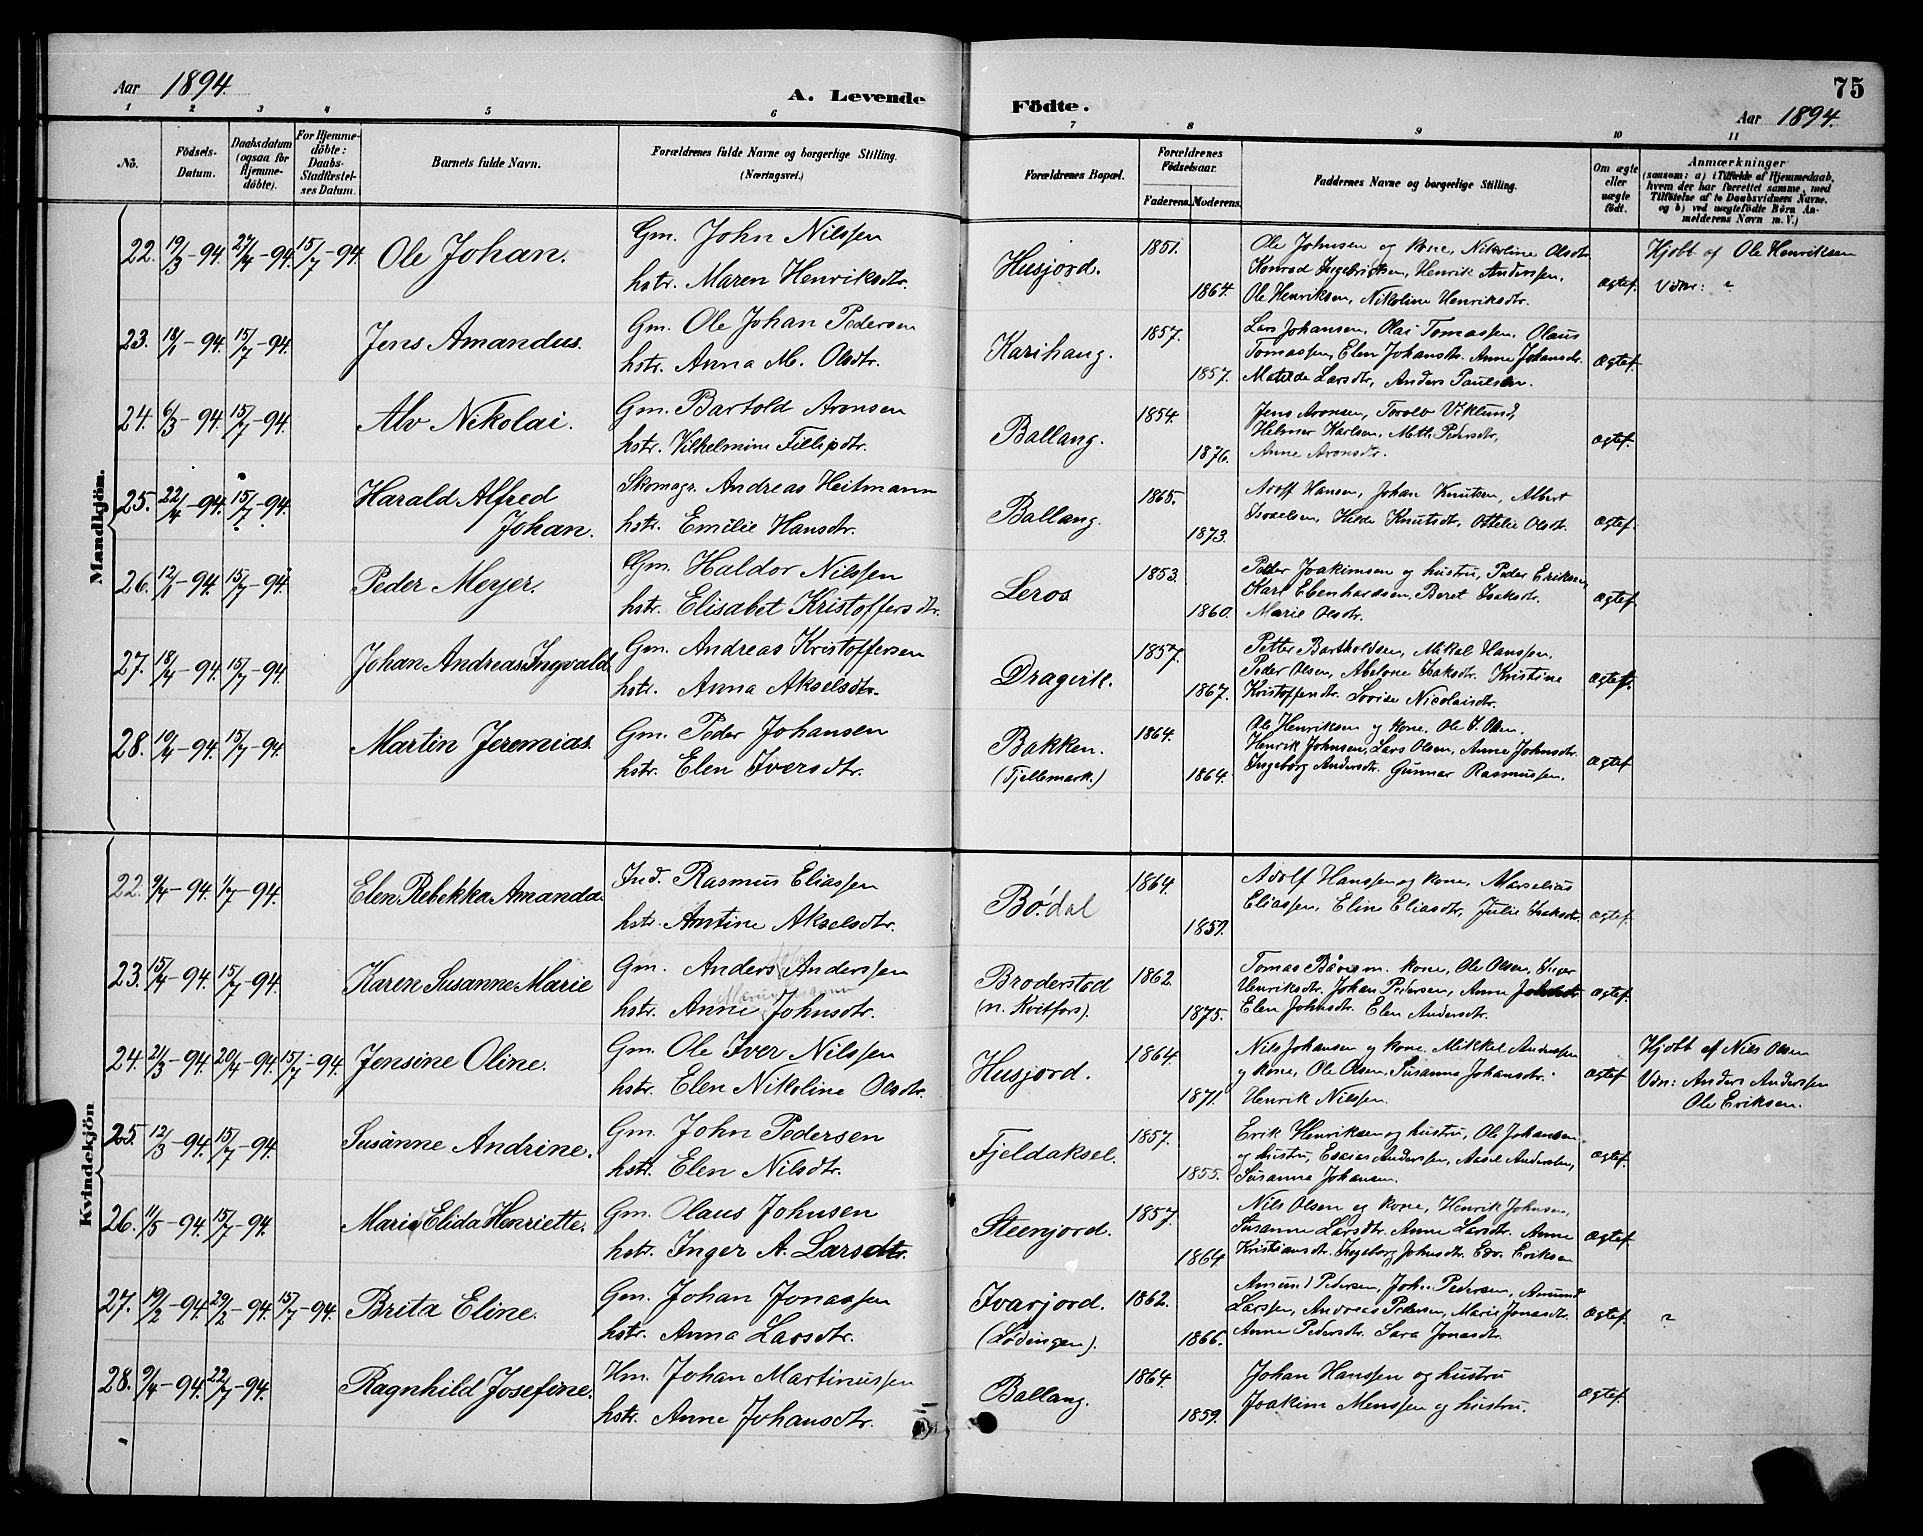 Aar 1894.
A. Levende Födte.
75
Aar 1894.
1 2 3 4 5 6 7 8 9 10 11
No. Födsels-Datum. Daabsdatum (ogsaa for Hjemmedöbte). For Hjemmedöbte: Daabs-Stadfæstelses Datum. Barnets fulde Navn. Forældrenes fulde Navne og borgerlige Stilling. (Næringsvei.) Forældrenes Bopæl. Forældrenes Födselsaar. Faderens. Moderens. Faddernes Navne og borgerlige Stilling. Om ægte eller uægte födt. Anmærkninger (saasom: a) i Tilfælde af Hjemmedaab, hvem der har forrettet samme, med Tilföielse af to Daabsvidners Navne, og b) ved uægtefödte Börn Anmelderens Navn m. V.)
Mandkjön.
22. 19/3-94. 27/4-94. 15/7-94 Ole Johan. Gm. John Nilssen Husjord. 1851. Ole Johnsen og kone, Nikoline Olsdtr. Hjdbt af Ole Henriksen
hstr. Maren Henriksdtr. 1864. Konrad Ingebriktsen, Henrik Anderssen, Ægtef. Vdne: "
Ole Henriksen, Nikoline Henriksdtr.
23. 18/1-94. 15/7-94. Jens Amandus. Gm. Ole Johan Pedersen Karihaug. 1857. Lars Johansen, Olai Tomassen, Olaus
hstr. Anna M. Olsdtr. 1857. Tomassen, Elen Johansdtr. Anne Johansdtr. Ægtef.
Matilde Larsdtr, Anders Paulsen.
24. 6/3-94. 15/7-94. Alv Nikolai. Gm. Bartold Aronsen Ballang. 1854. Jens Aronsen, Torolv Viklund,
hstr. Vilhelmine Fillipdtr. 1876. Helmer Karlsen, Meth. Pedersdtr, Ægtef.
Anne Aronsdtr.
25. 22/4-94. 15/7-94. Harald Alfred Johan. Skomagr. Andreas Heitmann Ballang. 1865. Adolf Hansen, Johan Knutsen, Albert
hstr. Emilie Hansdtr. 1873. Israelsen, Hilda Knutsdtr, Ottelie Olsdtr. Ægtef.
26. 12/1-94. 15/7-94. Peder Meyer. Gm. Haldor Nilssen Leros 1853. Peder Joakimsen og hustru, Peder Eriksen,
hstr. Elisabet Kristoffersdtr. 1860. Karl Ebenhardsen, Beret Isaksdtr. Ægtef.
Marie Olsdtr.
27. 18/4-94. 15/7-94. Johan Andreas Ingvald. Gm. Andreas Kristoffersen Dragvik. 1857. Petter Bartholdsen, Mikal Hanssen,
hstr. Anna Akselsdtr. 1867. Peder Olsen, Abelone Isaksdtr. Kristine Ægtef.
Kristoffersdtr. Lovise Nicolaisdtr.
28. 10/4-94. 15/7-94. Martin Jeremias. Gm. Peder Johansen Bakken. 1864. Ole Henriksen og kone, Ole J. Olsen.
hstr. Elen Iversdtr. (Fjellemark.) 1864. Henrik Johnsen, Lars Olsen, Anne Johnsdtr. Ægtef.
Ingeborg Andersdtr. Gunnar Rasmussen.
Kvindekjön
22. 9/4-94. 1/7-94. Elen Rebekka Amanda. Ind. Rasmus Eliassen Bødal 1864. Adolf Hanssen og kone, Marselius
hstr. Antine Akselsdtr. 1859. Eliassen, Eline Eliasdtr, Julie Isaksdtr. Ægtef.
23. 15/4-94. 15/7-94. Karen Susanne Marie Gm. Anders Anderssen Broderstad 1862. Tomas Båres m. kone, Ole Olsen, Inger
hstr. Anne Johnsdtr. (n. Kvitfors). 1875. Henriksdtr. Johan Pedersen, Anne Ægtef.
Elen Johnsdtr. Elen Andersdtr.
24. 21/3-94. 20/4-94. 15/7-94. Jensine Oline. Gm. Ole Iver Nilssen Husjord. 1864. Nils Johansen og kone. Mikkel Anderssen Hjdbt af Nils Olsen
hstr. Elen Nikoline Olsdtr. 1871. og kone, Ole Olsen. Susanna Johansdtr. Ægtef. Vdn: Anders Anderssen
Henrik Nilssen. Ole Eriksen.
25. 12/3-94. 15/7-94. Susanne Andrine. Gm. John Pedersen Fjeldaksel. 1857. Erik Henriksen og hustru, Ole Johansen
hstr. Elen Nilsdtr. 1855. og hustru, Esaias Anderssen, Aasel Anderssen, Ægtef.
Susanna Johansen.
26. 11/5-94. 15/7-94. Marie Elida Henriette. Gm. Olaus Johnsen Steenjord. 1857. Nils Olsen og kone, Henrik Johnsen,
hstr. Inger A. Larsdtr. 1864 Susanne Larsdtr. Anne Larsdtr. Anne Ægtef.
Kristiansdtr. Ingeborg Johnsdtr. Edv. Eriksen
27. 19/2-94. 29/2-94. 15/7-94. Brita Eline. Gm. Johan Jonassen Ivarjord. 1862. Amund Pedersen, John Pedersen, Amund
hstr. Anna Larsdtr. (Lødingen). 1866. Larssen, Andreas Pedersen, Marie Jonasdtr. Ægtef. "
Anne Pedersdtr. Sara Jonasdtr.
28. 9/4-94. 22/7-94. Ragnhild Josefine. Hm. Johan Martinussen Ballang. 1864. Johan Hanssen og hustru
hstr. Anne Johansdtr. 1859. Joakim Menssen og hustru. Ægtef.